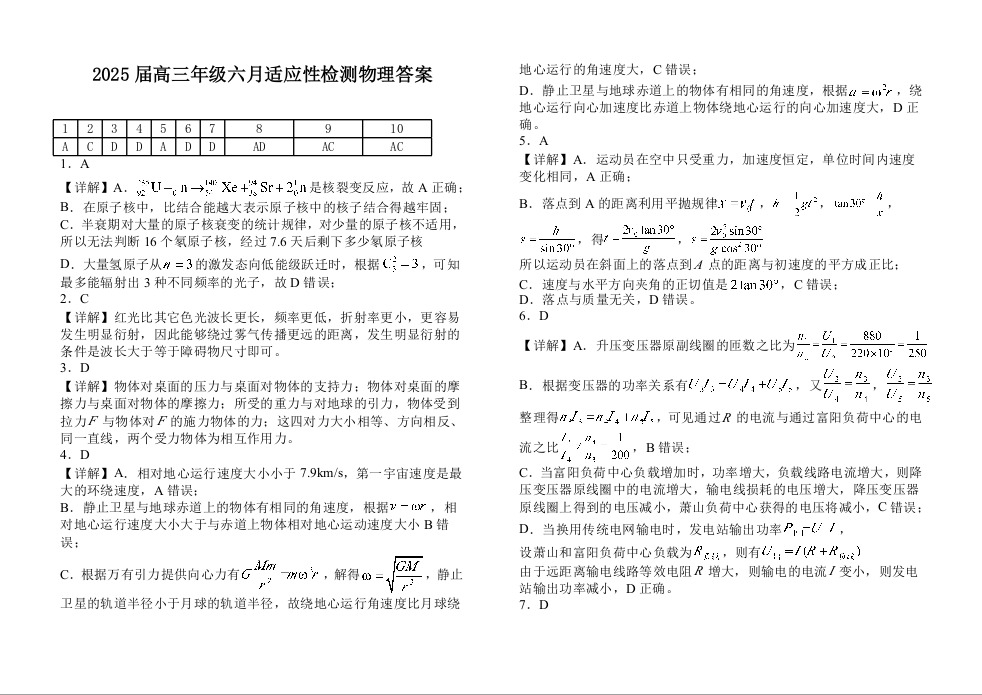 2025 届高三年级六月适应性检测物理答案
1 2 3 4 5 6 7 8 9 10
A C D D A D D AD AC AC
1．A
【详解】A．是核裂变反应，故 A 正确；
B．在原子核中，比结合能越大表示原子核中的核子结合得越牢固；
C．半衰期对大量的原子核衰变的统计规律，对少量的原子核不适用，
所以无法判断 16 个氡原子核，经过 7.6 天后剩下多少氡原子核
D．大量氢原子从 n=3 的激发态向低能级跃迁时，根据 C₃²=3 ，可知
最多能辐射出 3 种不同频率的光子，故 D 错误；
2．C
【详解】红光比其它色光波长更长，频率更低，折射率更小，更容易
发生明显衍射，因此能够绕过雾气传播更远的距离，发生明显衍射的
条件是波长大于等于障碍物尺寸即可。
3．D
【详解】物体对桌面的压力与桌面对物体的支持力；物体对桌面的摩
擦力与桌面对物体的摩擦力；所受的重力与对地球的引力，物体受到
拉力 F 与物体对 F 的施力物体的力；这四对力大小相等、方向相反、
同一直线，两个受力物体为相互作用力。
4．D
【详解】A．相对地心运行速度大小小于 7.9km/s，第一宇宙速度是最
大的环绕速度，A 错误；
B．静止卫星与地球赤道上的物体有相同的角速度，根据 v=ωr ，相
对地心运行速度大小大于与赤道上物体相对地心运动速度大小 B 错
误；
C．根据万有引力提供向心力有 G Mm/r² =mω²r ，解得 ω=√(GM/r³) ，静止
卫星的轨道半径小于月球的轨道半径，故绕地心运行角速度比月球绕
地心运行的角速度大，C 错误；
D．静止卫星与地球赤道上的物体有相同的角速度，根据 a=ω²r ，绕
地心运行向心加速度比赤道上物体绕地心运行的向心加速度大，D 正
确。
5．A
【详解】A．运动员在空中只受重力，加速度恒定，单位时间内速度
变化相同，A 正确；
B．落点到 A 的距离利用平抛规律 ， ， ，
s=h/sin30° ，得 t=2v₀tan30°/g ，s=2v₀²sin30°/gcos²30°
所以运动员在斜面上的落点到 A 点的距离与初速度的平方成正比；
C．速度与水平方向夹角的正切值是 2tan30° ，C 错误；
D．落点与质量无关，D 错误。
6．D
【详解】A．升压变压器原副线圈的匝数之比为 =880/220×10³=1/250
B．根据变压器的功率关系有 U₃I₃=U₄I₄+U₅I₅ ，又 U₃/U₄=n₃/n₄ ，U₃/U₅=n₃/n₅
整理得 n₃I₃=n₄I₄+n₅I₅ ，可见通过 R 的电流与通过富阳负荷中心的电
流之比 ，B 错误；
C．当富阳负荷中心负载增加时，功率增大，负载线路电流增大，则降
压变压器原线圈中的电流增大，输电线损耗的电压增大，降压变压器
原线圈上得到的电压减小，萧山负荷中心获得的电压将减小，C 错误；
D．当换用传统电网输电时，发电站输出功率 ，
设萧山和富阳负荷中心负载为 ，则有
由于远距离输电线路等效电阻 R 增大，则输电的电流 I 变小，则发电
站输出功率减小，D 正确。
7．D